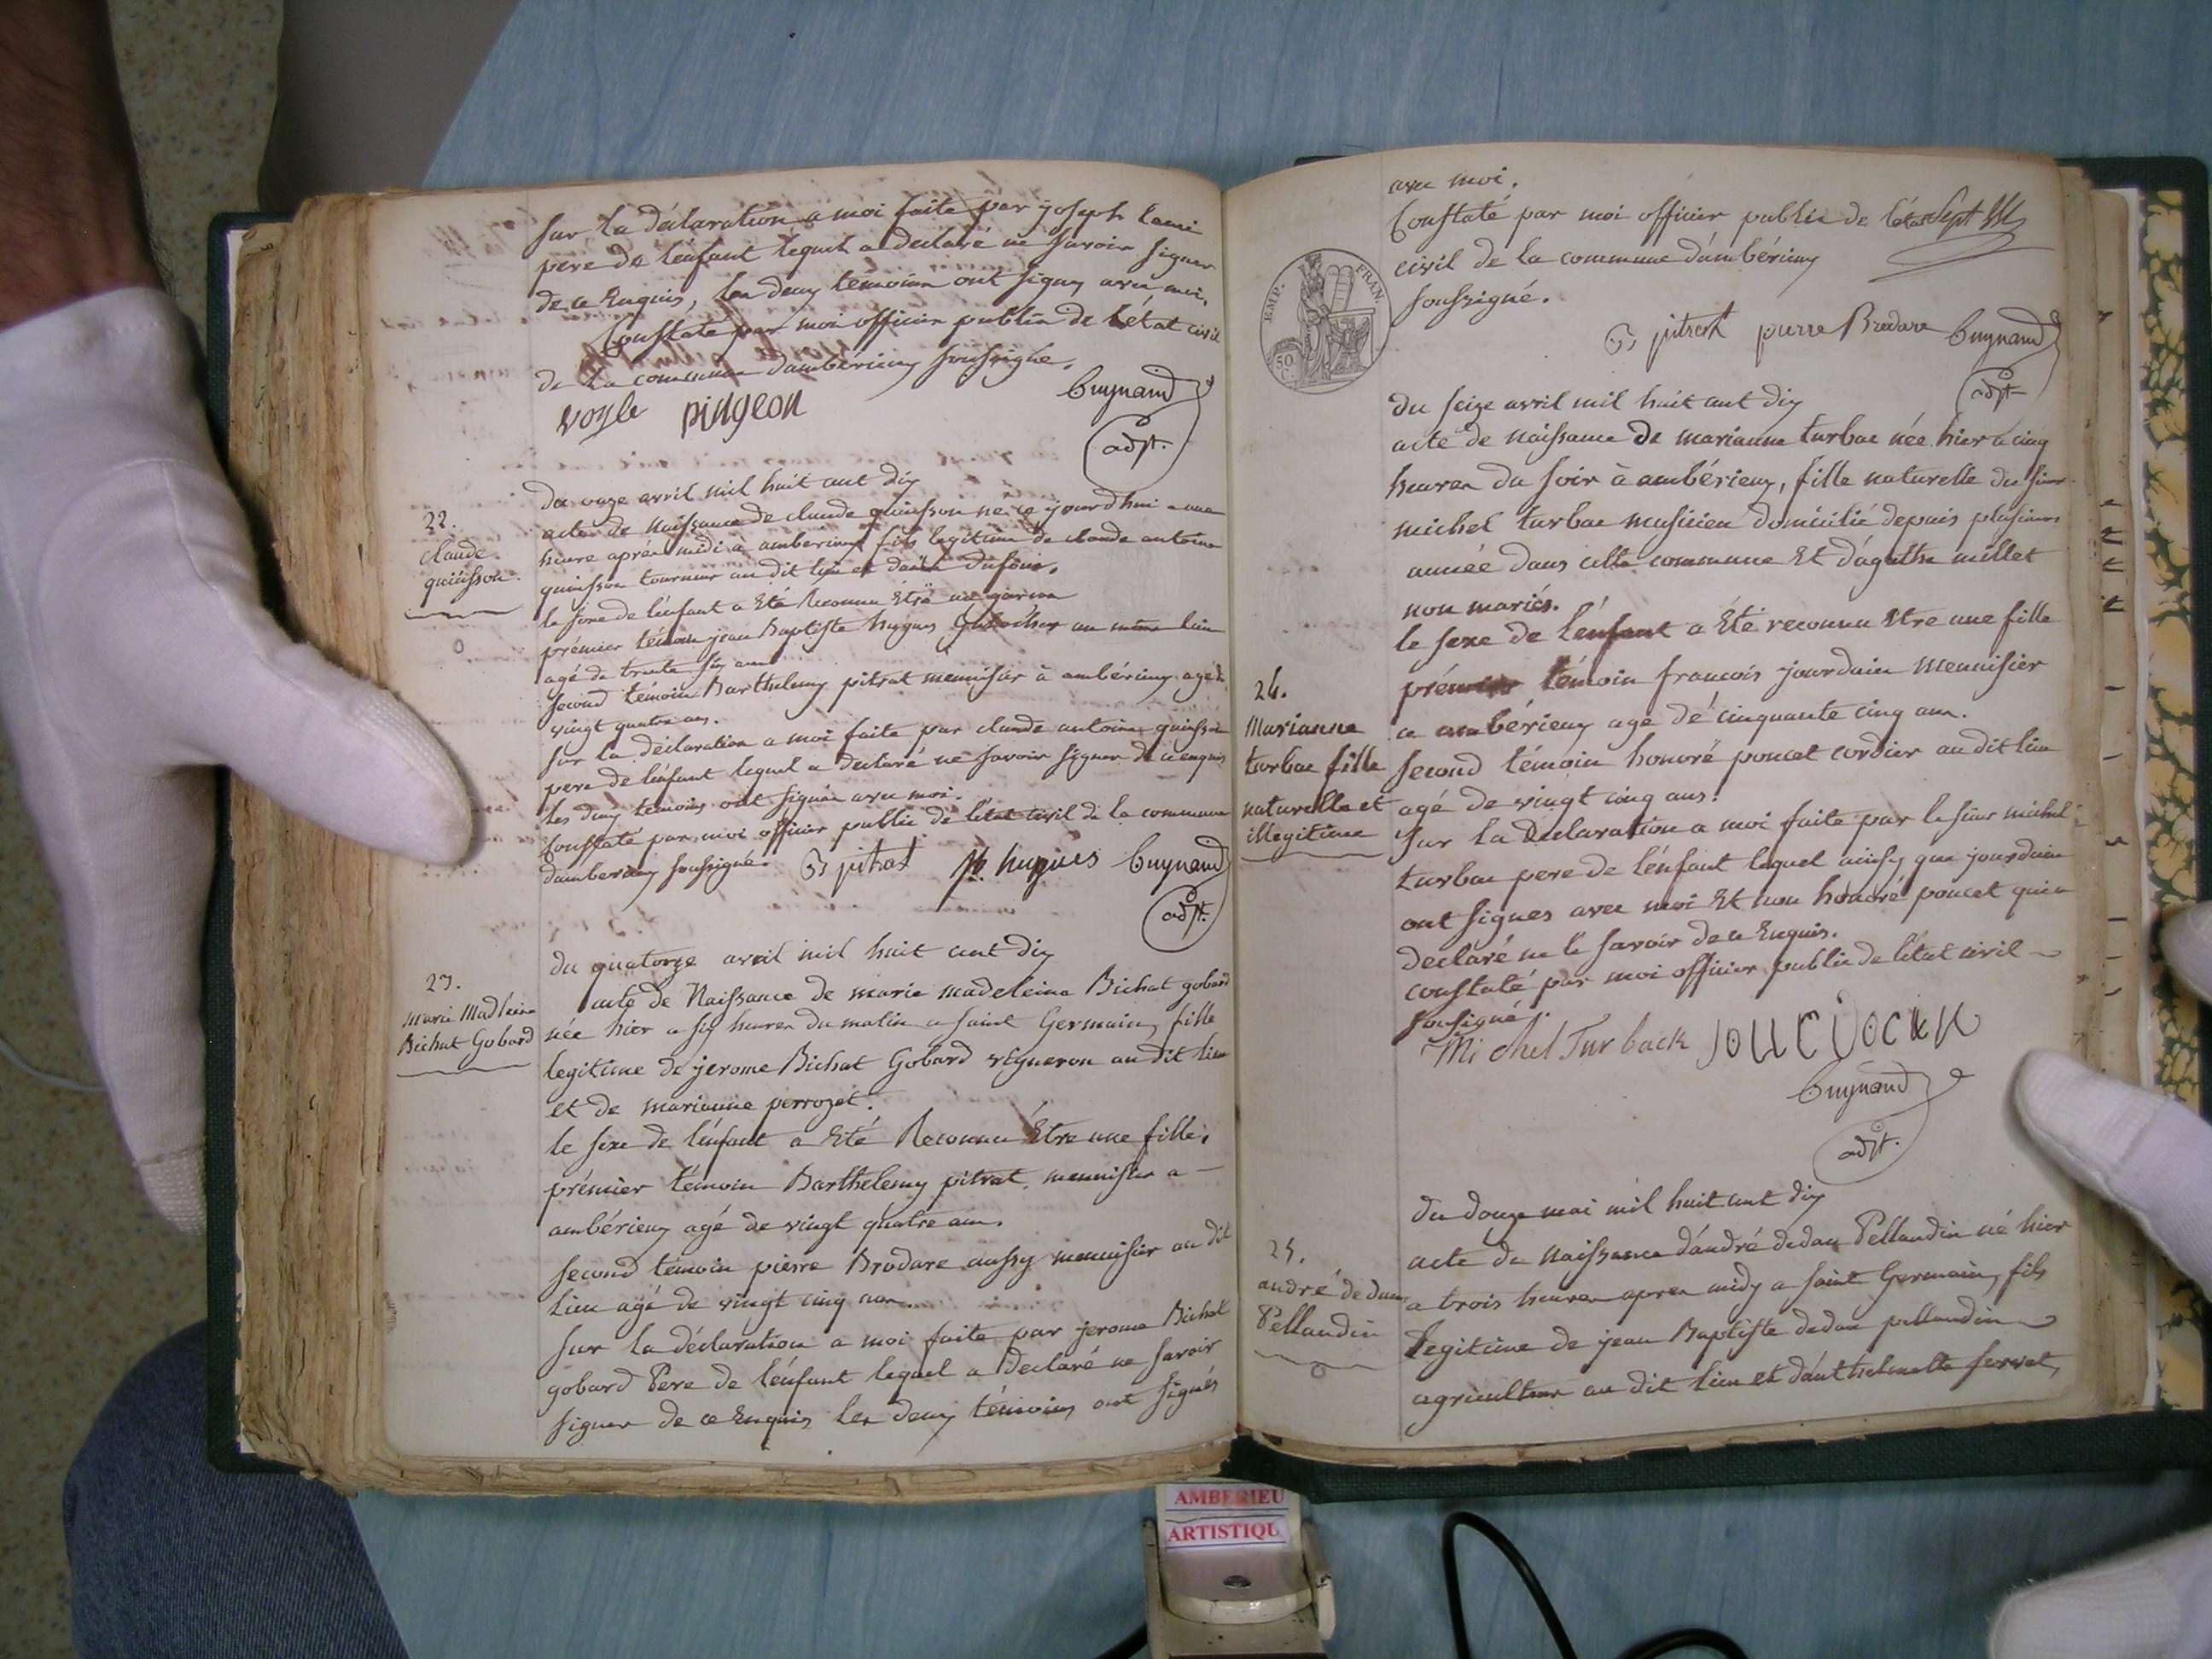 Sur la déclaration a moi faite par joseph
pere de l'énfant lequel a déclaré ne savoir signer
de ce Enquis, les deux témoins ont signés avec moi.
Constaté par moi officier public de l'état civil
de la commune d'ambérieux soussigné.
voyle pingeon Guynand
adjt.
22.
claude
quinsson.
du onze avril mil huit cent dix
acte de Naissance de claude quinsson né ce jourd'hui a une
heure aprés midi à amberieux fils legitime de claude antoine
quinsson tourneur au dit lieu et
le sexe de l'énfant a Eté Reconnu Etre un garcon
prémier témoin jean Baptiste hugues au même lieu
agé de trente six ans
second témoin Barthelemy pitrat menuisier à ambérieux agé de
vingt quatre ans.
sur la déclaration a moi faite par claude antoine quinsson
pere de l'énfant lequel a declaré ne savoir signer de ce enquis
les deux temoins ont signés avec moi.
Constaté par moi officier public de l'état civil de la commune
d'amberieux soussigné. B pitrat hugues Guynand
adjt.
23.
Marie Madleine
Bichat Gobard
du quatorze avril mil huit cent dix
acte de Naissance de marie madeleine Bichat gobard
née hier a six heures du matin a saint Germain, fille
legitime de jerome Bichat Gobard vigneron au dit lieu
et de marianne perrozet.
le sexe de l'énfant a Eté Reconnu Etre une fille.
prémier témoin Barthelemy pitrat menuisier a
ambérieux agé de vingt quatre ans.
second témoin pierre Brodare aussy menuisier au dit
lieu agé de vingt cinq ans
sur la déclaration a moi faite par jerome Bichat
gobard Pere de l'énfant lequel a declaré ne savoir
signer de ce Enquis les deux témoins ont signés
avec moi.
Constaté par moi officier public de l'état
civil de la commune d'ambérieux
soussigné.
EMP. FRAN.
50 C.
B pitrat pierre Brodare Guynand
adjt
du seize avril mil huit cent dix
acte de naissance de marianne turbac née hier a cinq
heures du soir à ambérieux, fille naturelle du sieur
michel turbac musicien domicilié depuis plusieurs
année dans cette commune Et d'agathe millet
non mariés.
le sexe de l'énfant a Eté reconnu Etre une fille
prémier témoin francois jourdain menuisier
a ambérieux agé de cinquante cinq ans.
24.
Marianne
turbac fille
naturelle et
illegitime
second témoin honoré poncet cordier au dit lieu
agé de vingt cinq ans.
sur la Declaration a moi faite par le sieur michel
turbac pere de l'énfant lequel ainsy que jourdain
ont signes avec moi Et non honoré poncet qui a
declaré ne le savoir de ce Enquis.
constaté par moi officier public de l'état civil
sousigné.
Michel Turback jourdain
Guynand
adjt.
25.
andré dedan
Pellandin
du douze mai mil huit cent dix
acte de naissance d'andré dedan Pellandin né hier
a trois heures apres midy a saint Germain, fils
legitime de jean Baptiste dedan pellandin
agriculteur au dit lieu et d'anthelmette
AMBERIEU
ARTISTIQU